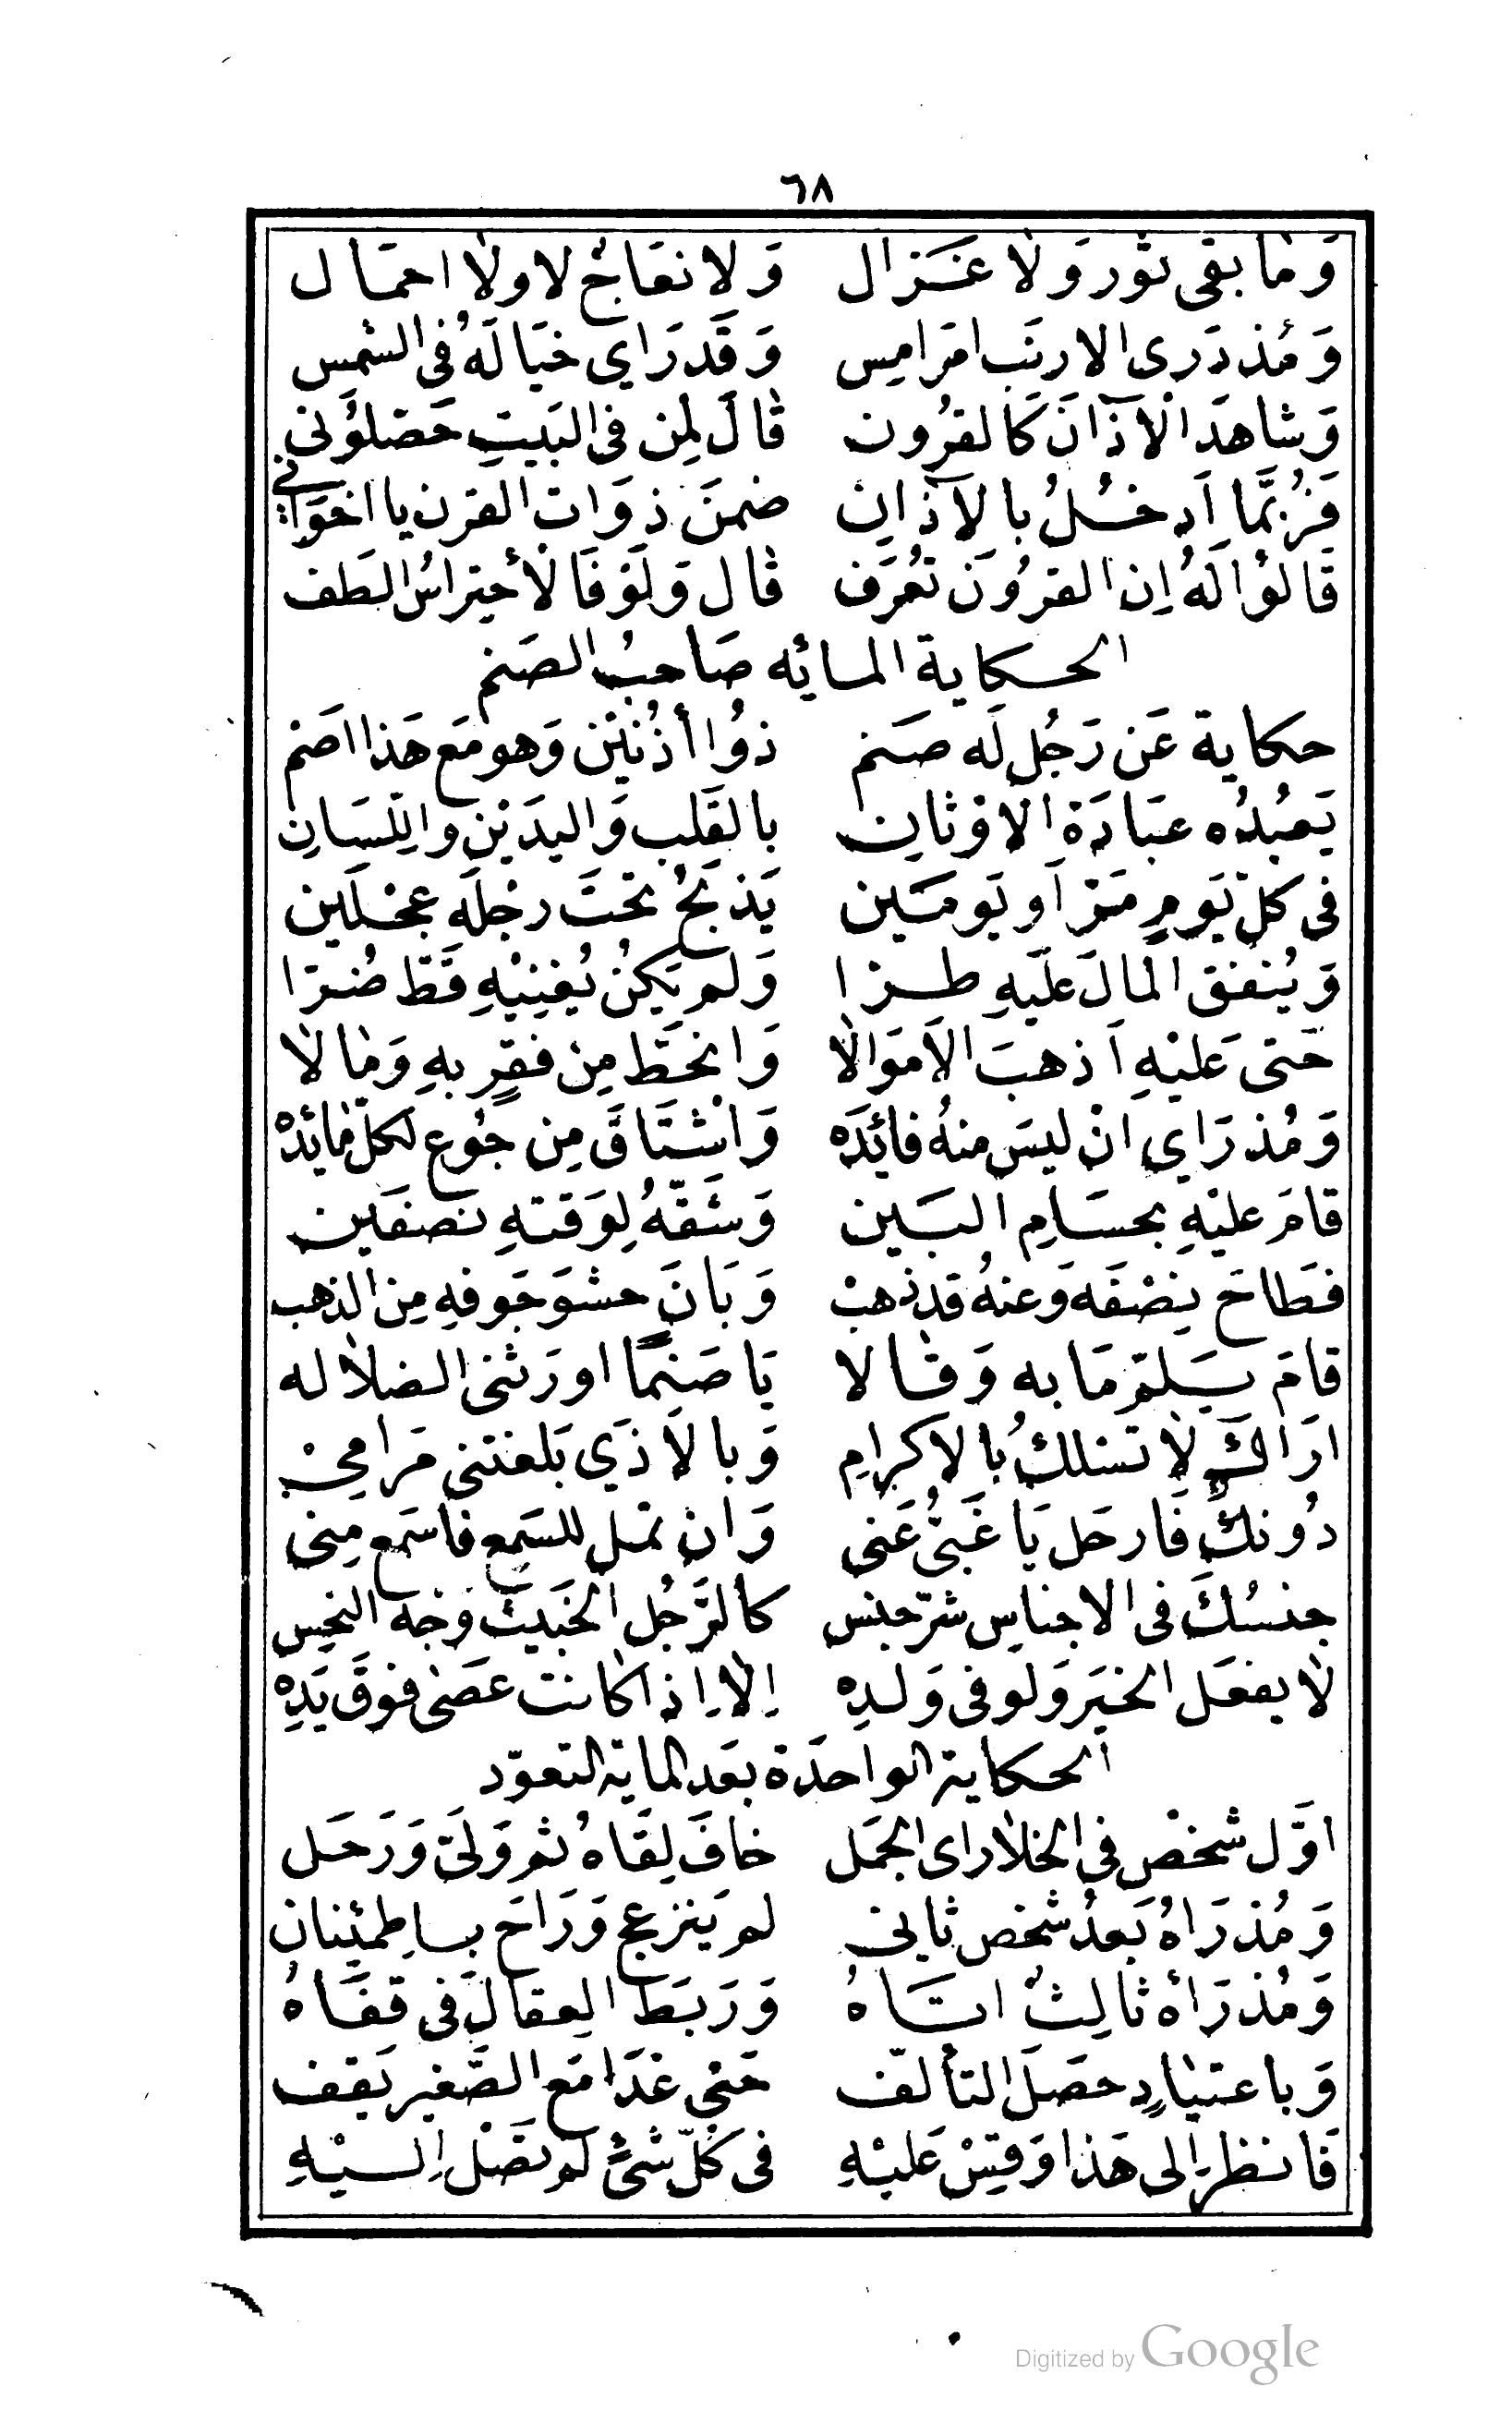 ٦٨
وَمَا بقى ثور وَلَا غَزال وَلا نعَاجٌ لا ولا احمَال
وَمُذ دَرى الارنَب امرَ امِس وَقَد رَاي خيَالَهُ فى الشمس
وَشاهدَ الآذانَ كَالقرُون قالَ لِمن فى البَيتِ حَصّلوُنى
فَرُبمَّا اَدخُلُ بالآذان ضمنَ ذوَات القرن يا اخوَانى
قَالوُا لَهُ اِن القرُونَ تعُرَف قال وَلَوْ فَالأحتراسُ الطَف
الحكاية المائه صَاحبُ الصَنم
حكاية عَن رَجُل لَه صَنم ذوُا أذُنيْن وَهو مَع هَذا اصَم
يَعبُدُه عبَادَة الاوثان بالقَلب وَاليدَين واللّسَان
فى كلّ يَومٍ مَرّ اَو يَومَين يَذبَحُ تحتَ رجْلَه عجْلَين
وَيُنفق المالَ عَليَهِ طرا وَلم يَكنُ يُغنِيْهِ قَطّ ضُرّا
حَتى عَليْهِ اَذهبَ الاَموَالا وَانحَطّ مِن فقرٍ بهِ وَمَالا
وَمُذ رَاي انْ ليسَ منهُ فائدَه وَاشتَاقَ مِن جُوع لكلّ مَائدْه
قامَ عليْهِ بحسَامِ البَين وَشَقّهُ لِوَقتهِ نصفَين
فطَاحَ نِصْفَه وَعنهُ قد ذهبْ وَبَانَ حشوَ جَوفهِ مِن الذهب
قامَ يسَلمّ مَا به وَقالا يَا صَنمًا اورَثنى الضلاله
ارَاكَ لا تسْلكُ بالاكرامِ وَبالاَذَي بَلغتنى مَرامىْ
دُونكَ فَارحَل يَا غَبىُّ عَنى وَان تمل للسَمع فاسَمع مِنى
جنسُكَ فى الاجناسِ شرّ جنس كالرَّجُل الخَبيث وَجْه النحِس
لا يفعَل الخيرَ وَلو فى وَلدِه اِلا اِذا كانت عَصَى فوقَ يَدِه
الحكاية الواحدَة بعَد الماية التعوّد
اوّل شخْصٍ فى الخلا راى الجمَل خافَ لِقَاهُ ثم وَلىّ وَرَحَل
وَمُذ رَاهُ بَعدُ شخص ثانى لم يَنزعج وَرَاحَ بساطمئِنان
وَمُذ رَأهُ ثالِثُ اتَاهُ وَرَبَط العِقالَ فى قفَاهُ
وَباعتيَادٍ حصَل التألّف حَتى غدَا مَع الصَّغير يَقِف
فَانظر اِلى هَذا وَقِسْ عَليْهِ فى كلّ شيءٌ لم تصَل اِليْهِ
Digitized by Google